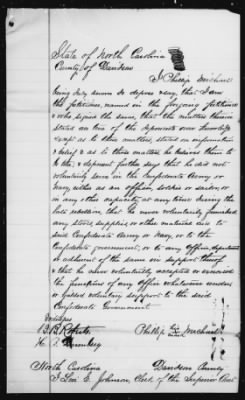 State of North Carolina
County of Davidson
I Phillip
being duly sworn do depose & say, that I am
the petitioner, named in the forgoing petition
& who signed the same, that the matters therein
stated are true of the deponents own knowledge
except as to those matters stated on information
& belief & as to those matters he believes them to
be true, & deponent further says that he did not
voluntarily serve in the Confederate Army or
Navy, either as an officer, soldier or sailor, or
in any other capacity, at any time during the
late rebellion, that he never voluntarily furnished
any stores, supplies, or other material aid to
said Confederate Army or Navy, or to the
Confederate government, or to any officer, department
or adherent of the same in support thereof
& that he never voluntarily accepted or exercised
the functions of any office whatsoever under
or yielded voluntary support to the said
Confederate Government
B. B. Roberts Phillip his mark
H.
North Carolina Davidson County
I E. Johnson, Clerk of the Superior Court